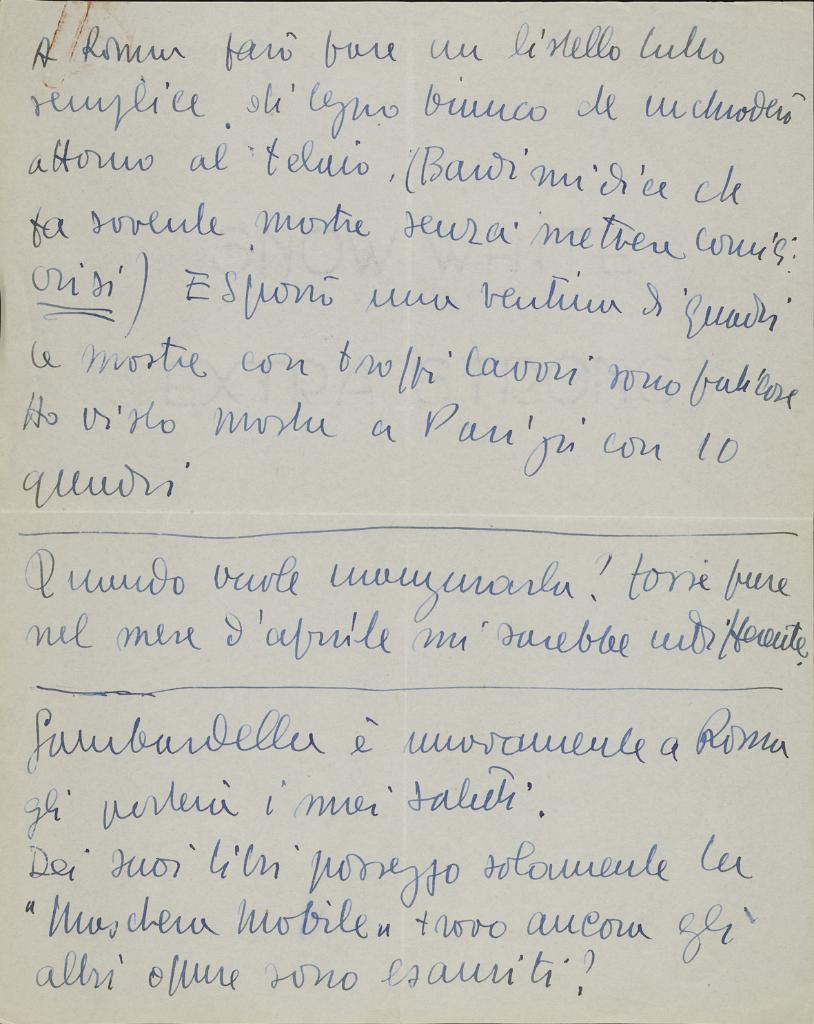 A Roma farò fare un listello tutto
semplice, di legno bianco che inchioderò
attorno al telaio. (Bardi mi dice che
fa sovente mostre senza mettere cornici:
crisi) Esporrò una ventina di quadri
le mostre con troppi lavori sono faticose
Ho visto mostre a Parigi con 10
quadri
Quando vuole inaugurarla? fosse pure
nel mese d'aprile mi sarebbe indifferente.
Gambardella è nuovamente a Roma
gli porterà i miei saluti.
Dei suoi libri posseggo solamente la
"Maschera Mobile" trovo ancora gli
altri oppure sono esauriti?